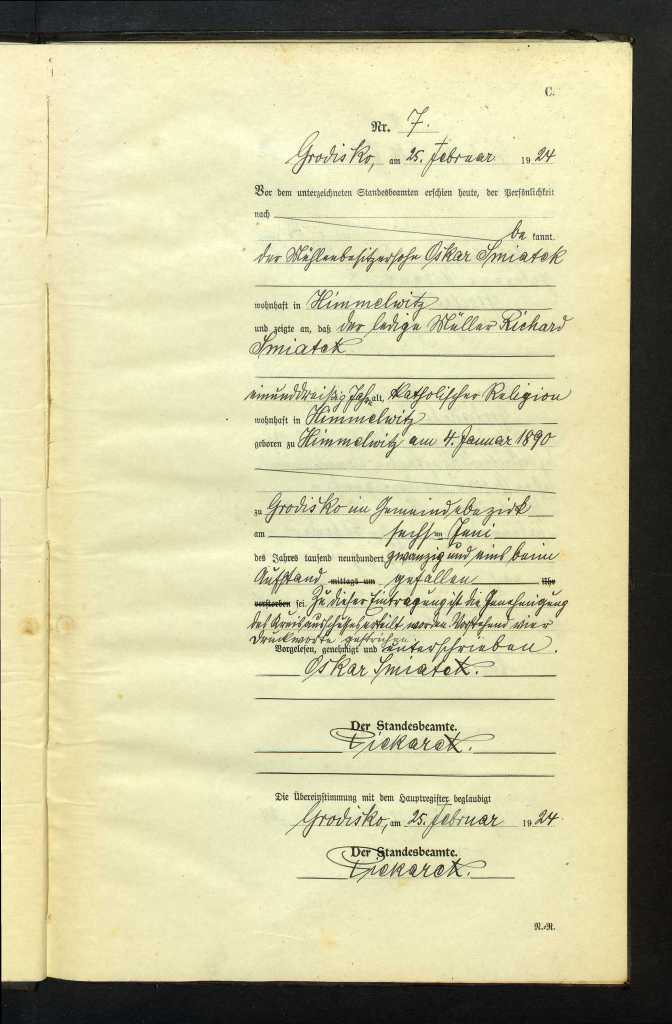 C.
Nr. 7.
Grodisko, am 25. Februar 1924
Vor dem unterzeichneten Standesbeamten erschien heute, der Persönlichkeit
nach
be kannt.
der Mühlenbesitzersohn Oskar Smiatek
wohnhaft in Himmelwitz
und zeigte an, daß der ledige Müller Richard
Smiatek
einunddreißig Jahr alt, katholischer Religion
wohnhaft in Himmelwitz
geboren zu Himmelwitz am 4. Januar 1890
zu Grodisko im Gemeindebezirk
am sechsten Juni
des Jahres tausend neunhundert zwanzig und eins beim
Aufstand mittags um gefallen Uhr
verstorben sei. Zu dieser Eintragung ist die Genehmigung
des Kreisausschusses erteilt worden. Vorstehend vier
Druckworte gestrichen.
Vorgelesen, genehmigt und unterschrieben.
Oskar Smiatek.
Der Standesbeamte.
Pickarek.
Die Übereinstimmung mit dem Hauptregister beglaubigt
Grodisko, am 25. Februar 1924.
Der Standesbeamte.
Pickarek.
N.-R.